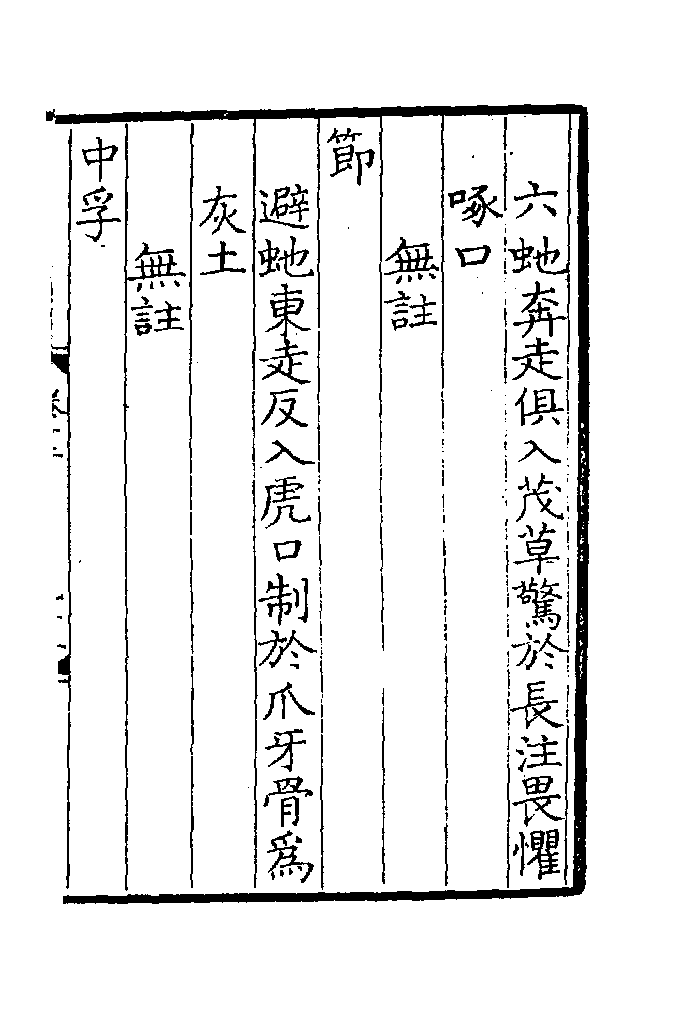 六虵奔走俱入茂草驚於長注畏懼
啄口
無註
節
避虵東走反入虎口制於爪牙骨爲
灰土
無註
中孚